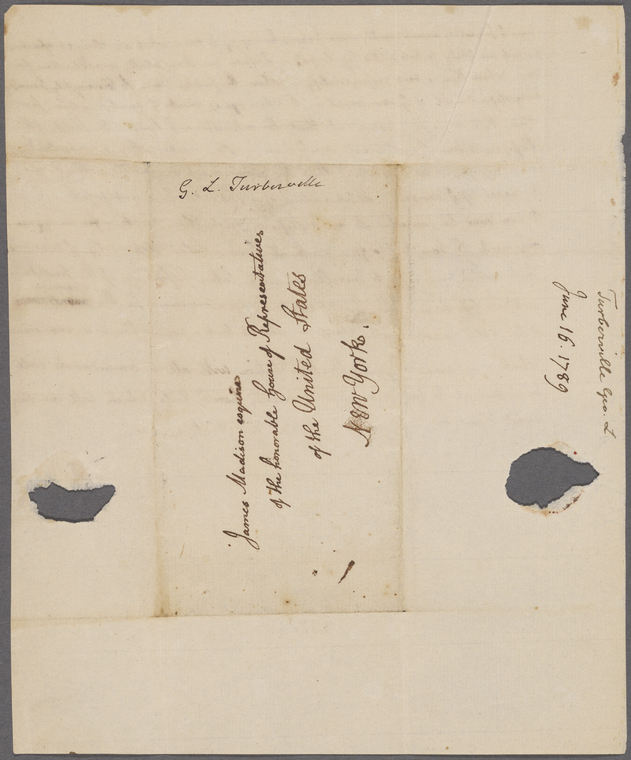 G. L. Turberville
James Madison esquire
of the honorable House of Representatives
of the United States
New York.
Turberville Geo. L.
June 16. 1789